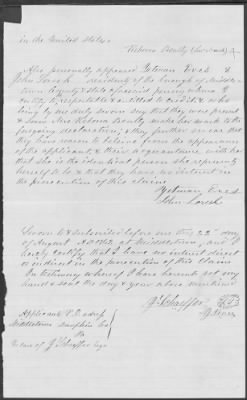 in the United States.
Rebecca Beatty (her mark)
Also personally appeared Yetman Eves &
John residents of the borough of Middle
town County & State aforesaid persons whom I
certify to respectable & entitled to credit & who
being by me duly sworn say that they were present
& saw her Rebecca Beatty make her mark to the
foregoing declaration; & they further swear that
they have reason to believe from the appearance
of the applicant & their acquaintance with her
that she is the identical person she represents
herself to be & that they have no interest in
the prosecution of this claim
Yetman Eves
John
Sworn to & subscribed before me this 22 day
of August AD 1862 at Middletown, and I
hereby certify that I have no interest direct
or indirect in the prosecution of this claim
In testimony whereof I have hereunto set my
hand & seal the day & year above mentioned
Applicants P.O. address
Middletown Dauphin Co
Pa